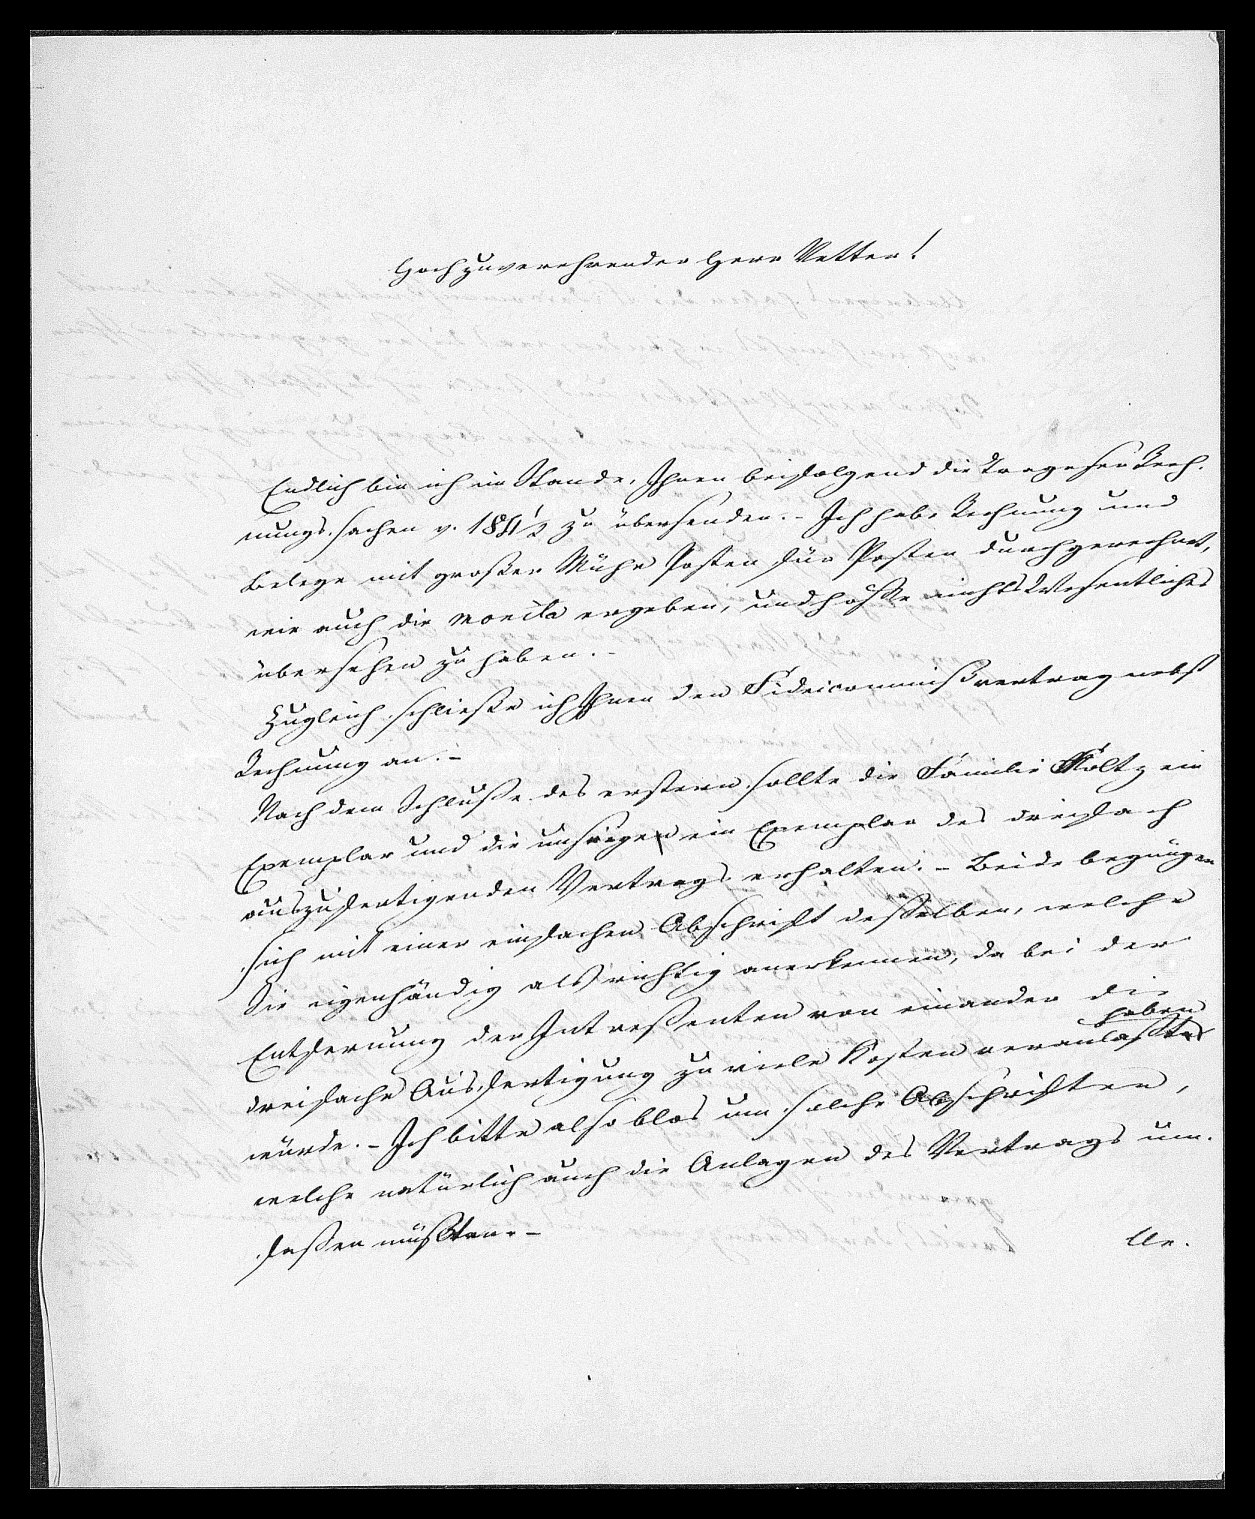 Hochzuverehrender Herr Vetter!
Endlich bin ich im Stande, Ihnen beifolgend die Rech-
nungssachen v. 1841/2 zu übersenden. – Ich habe Rechnung und
Belege mit großer Mühe Posten für Posten durchgerechnet,
wie auch die Monita ergeben, und hoffe nichts Wesentliches
übersehen zu haben. –
Zugleich schließe ich Ihnen den Fideicommißvertrag nebst
Rechnung an. –
Nach dem Schluße des erstern sollte die Familie Holtz ein
Exemplar und die unsrige ein Exemplar des dreifach
auszufertigenden Vertrags erhalten. – Beide begnügen
sich mit einer einfachen Abschrift desselben, welche
Sie eigenhändig als richtig anerkennen, da bei der
Entfernung der Intressenten von einander die
dreifache Ausfertigung zu viele Kosten veranlaßt haben
würde. – Ich bitte also blos um solche Abschriften,
welche natürlich auch die Anlagen des Vertrags um-
faßen müßten. –
Ue-